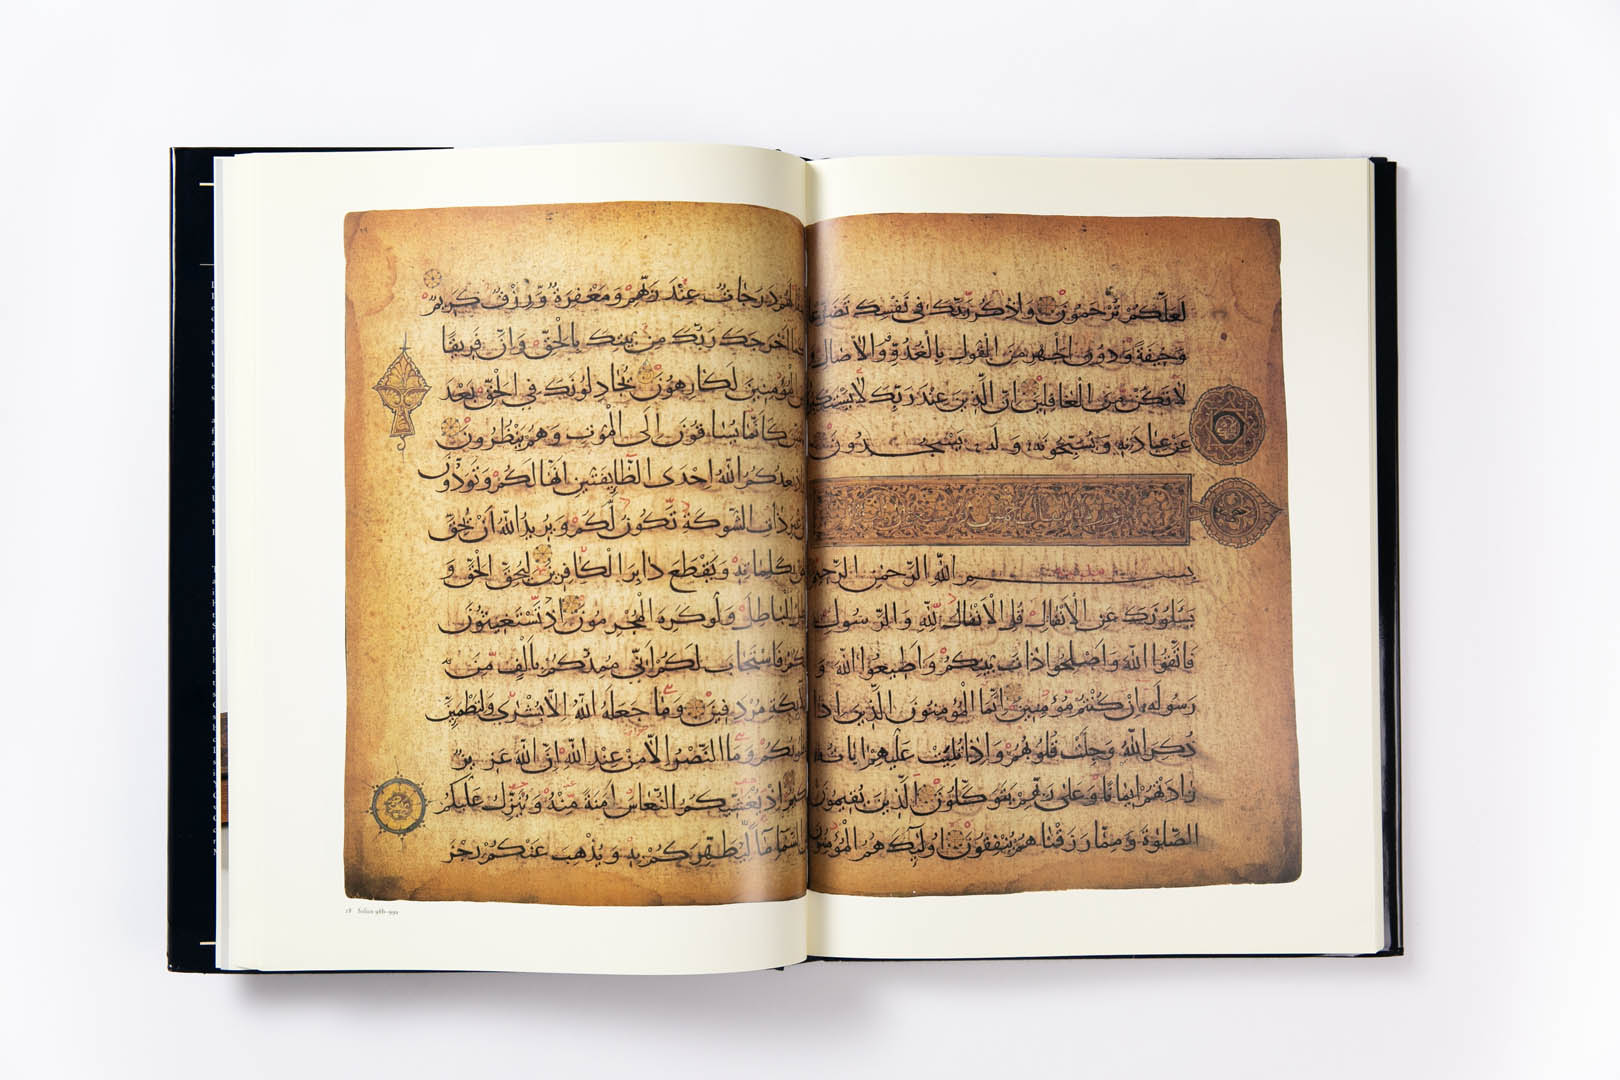 لَعَلَّكُمْ تُرْحَمُونَ وَاذْكُر رَبَّكَ فِي نَفْسِكَ تَضَرُّعًا
وَخِيفَةً وَدُونَ الْجَهْرِ مِنَ الْقَوْلِ بِالْغُدُوِّ وَالْآصَالِ وَ
لَا تَكُنْ مِنَ الْغَافِلِينَ إِنَّ الَّذِينَ عِنْدَ رَبِّكَ لَا يَسْتَكْبِرُونَ
عَنْ عِبَادَتِهِ وَيُسَبِّحُونَهُ وَلَهُ يَسْجُدُونَ
بِسْمِ اللَّهِ الرَّحْمَنِ الرَّحِيمِ
يَسْأَلُونَكَ عَنِ الْأَنْفَالِ قُلِ الْأَنْفَالُ لِلَّهِ وَالرَّسُولِ
فَاتَّقُوا اللَّهَ وَأَصْلِحُوا ذَاتَ بَيْنِكُمْ وَأَطِيعُوا اللَّهَ وَ
رَسُولَهُ إِنْ كُنْتُمْ مُؤْمِنِينَ إِنَّمَا الْمُؤْمِنُونَ الَّذِينَ إِذَا
ذُكِرَ اللَّهُ وَجِلَتْ قُلُوبُهُمْ وَإِذَا تُلِيَتْ عَلَيْهِمْ آيَاتُهُ
زَادَتْهُمْ إِيمَانًا وَعَلَى رَبِّهِمْ يَتَوَكَّلُونَ الَّذِينَ يُقِيمُونَ
الصَّلَوٰةَ وَمِمَّا رَزَقْنَاهُمْ يُنْفِقُونَ أُولَئِكَ هُمُ الْمُؤْمِنُونَ
دَرَجَاتٌ عِنْدَ رَبِّهِمْ وَمَغْفِرَةٌ وَرِزْقٌ كَرِيمٌ
كَمَا أَخْرَجَكَ رَبُّكَ مِنْ بَيْتِكَ بِالْحَقِّ وَإِنَّ فَرِيقًا
مِنَ الْمُؤْمِنِينَ لَكَارِهُونَ يُجَادِلُونَكَ فِي الْحَقِّ بَعْدَ
كَأَنَّمَا يُسَاقُونَ إِلَى الْمَوْتِ وَهُمْ يَنْظُرُونَ
وَإِذْ يَعِدُكُمُ اللَّهُ إِحْدَى الطَّائِفَتَيْنِ أَنَّهَا لَكُمْ وَتَوَدُّونَ
غَيْرَ ذَاتِ الشَّوْكَةِ تَكُونُ لَكُمْ وَيُرِيدُ اللَّهُ أَنْ يُحِقَّ
الْحَقَّ بِكَلِمَاتِهِ وَيَقْطَعَ دَابِرَ الْكَافِرِينَ لِيُحِقَّ الْحَقَّ وَ
يُبْطِلَ الْبَاطِلَ وَلَوْ كَرِهَ الْمُجْرِمُونَ إِذْ تَسْتَغِيثُونَ
رَبَّكُمْ فَاسْتَجَابَ لَكُمْ أَنِّي مُمِدُّكُمْ بِأَلْفٍ مِنَ
الْمَلَائِكَةِ مُرْدِفِينَ وَمَا جَعَلَهُ اللَّهُ إِلَّا بُشْرَى وَلِتَطْمَئِنَّ
قُلُوبُكُمْ وَمَا النَّصْرُ إِلَّا مِنْ عِنْدِ اللَّهِ إِنَّ اللَّهَ عَزِيزٌ
حَكِيمٌ إِذْ يُغَشِّيكُمُ النُّعَاسَ أَمَنَةً مِنْهُ وَيُنَزِّلُ عَلَيْكُمْ
السَّمَاءِ مَاءً لِيُطَهِّرَكُمْ بِهِ وَيُذْهِبَ عَنْكُمْ رِجْزَ